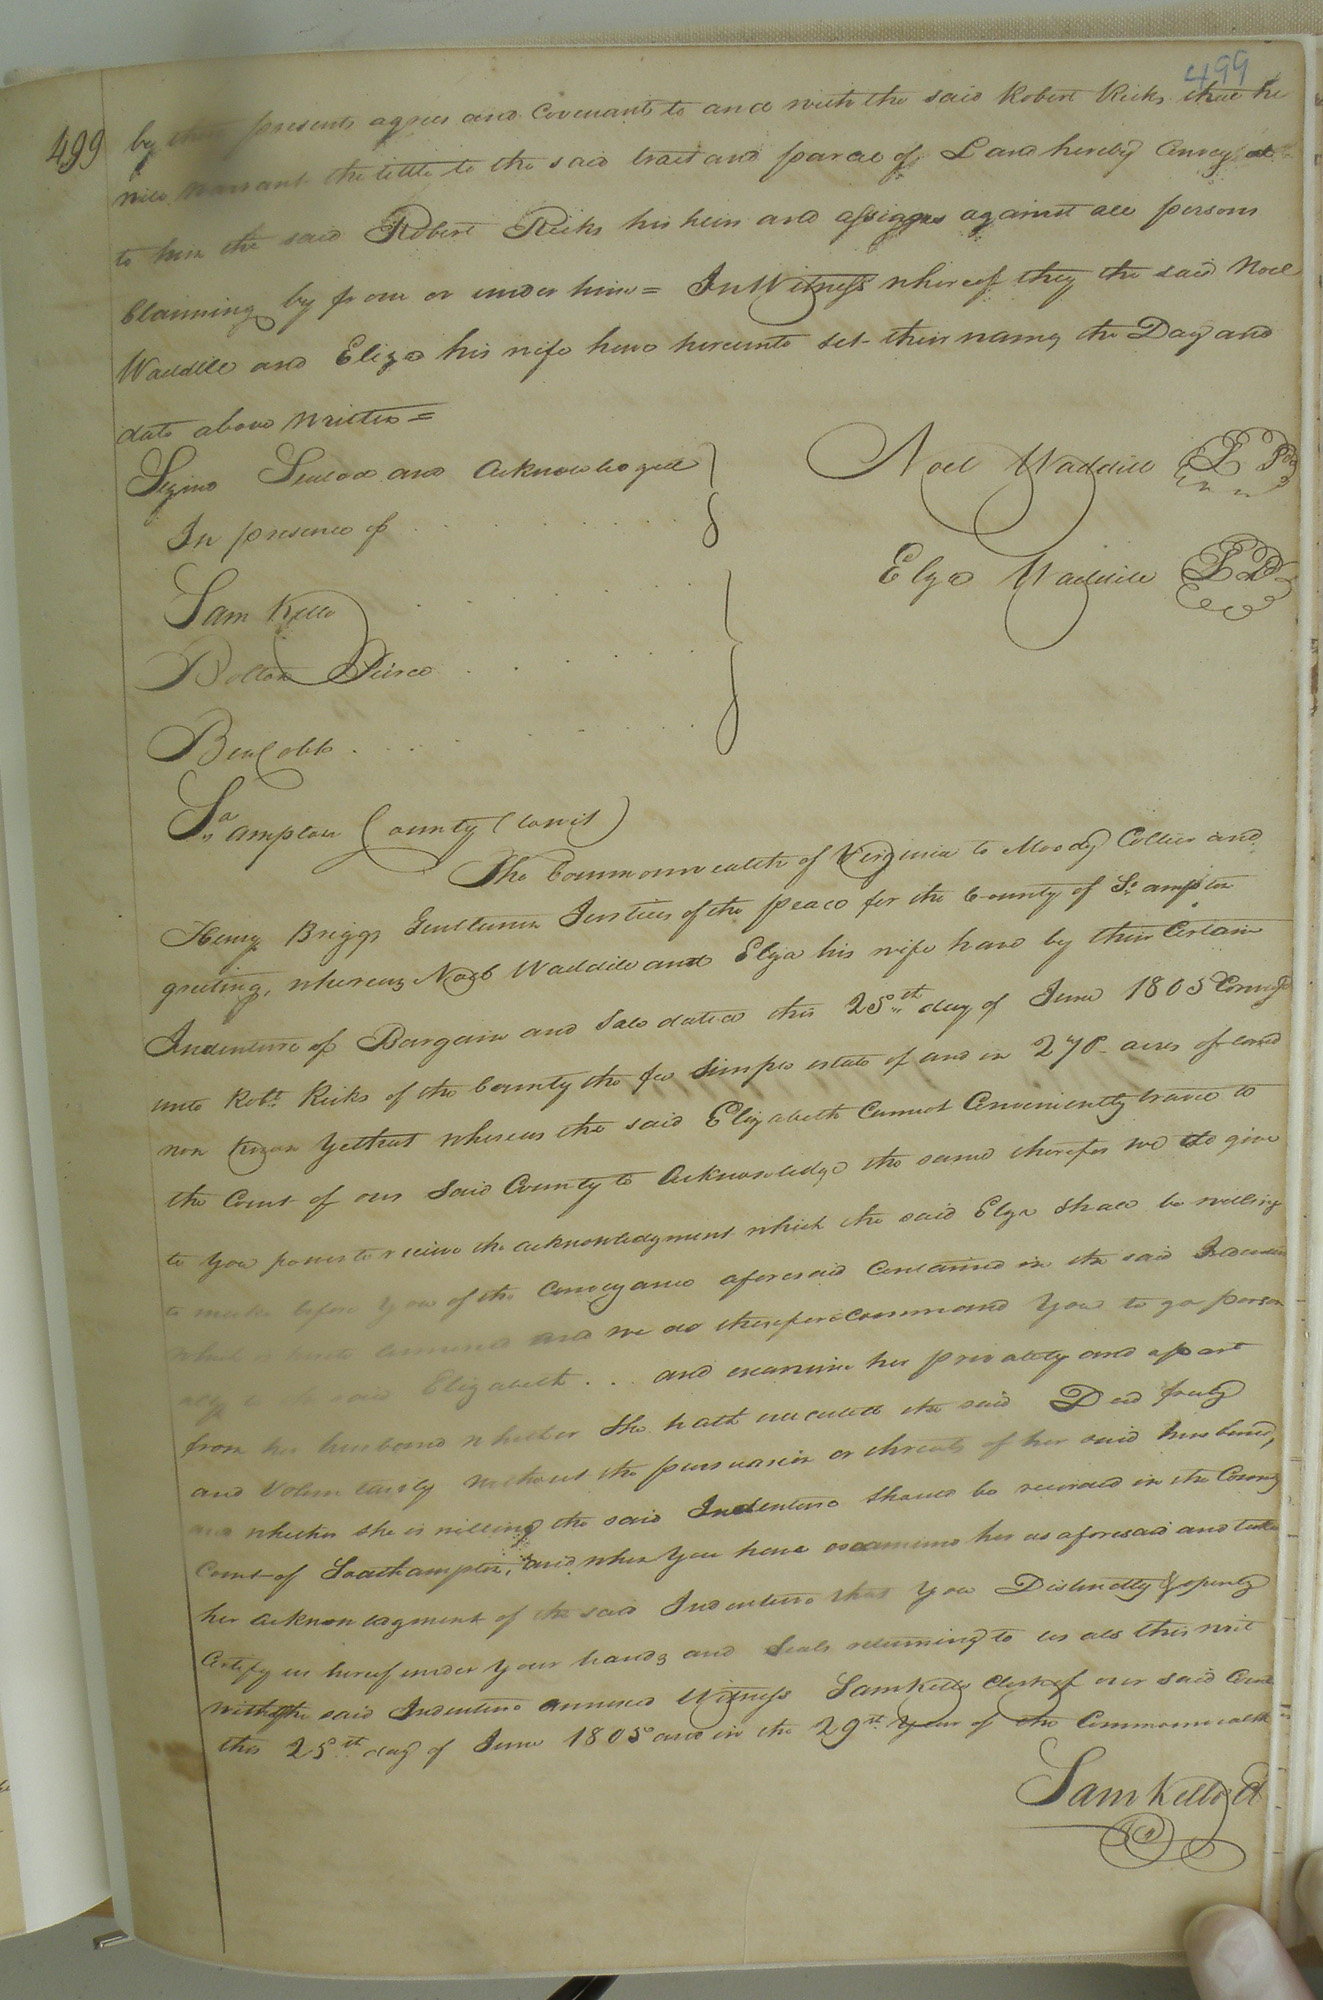 499
499
by these presents agrees and Covenants to and with the said Robert Ricks that he
will warrant the title to the said tract and parcel of Land hereby Conveyed
to him the said Robert Ricks his heirs and assigns against all persons
Claiming by from or under him = In Witness whereof they the said Noel
Waddill and Eliza his wife have hereunto set their names the Day and
date above written =
Signed Sealed and Acknowledged
In presence of
Noel Waddill
Eliza Waddill
Sam Kello
Bolton Pierce
Ben Cobb
So. ampton County (towit)
The Commonwealth of Virginia to Moody Collier and
Henry Briggs Gentlemen Justices of the peace for the County of So. ampton
greeting, whereas Noel Waddill and Eliza his wife have by their Certain
Indenture of Bargain and Sale dated this 25th day of June 1805 Conveyd
unto Robt. Ricks of the County the fee Simple estate of and in 270 acres of land
now Know Ye that whereas the said Elizabeth Cannot Conveniently travel to
the Court of our Said County to Acknowledge the same therefore we do give
to you power to receive the acknowledgment which the said Eliza Shall be willing
to make before you of the Conveyance aforesaid Contained in the said Indenture
which is hereto annexed and we do therefore command you to go person
ally to the said Elizabeth . . . and examine her privately and apart
from her husband whether She hath executed the said Deed freely
and Voluntarily without the persuasion or threats of her said husband,
and whether she is willing the said Indenture Should be recorded in the County
Court of Southampton, and when you have examined her as aforesaid and taken
her acknowledgment of the said Indenture that you Distinctly & openly
Certify us hereof under your hands and Seals returning to us als this writ
with the said Indenture annexed Witness Sam Kello Clerk of our said Court
this 25th day of June 1805 and in the 29th Year of the Commonwealth
Sam Kello Cl